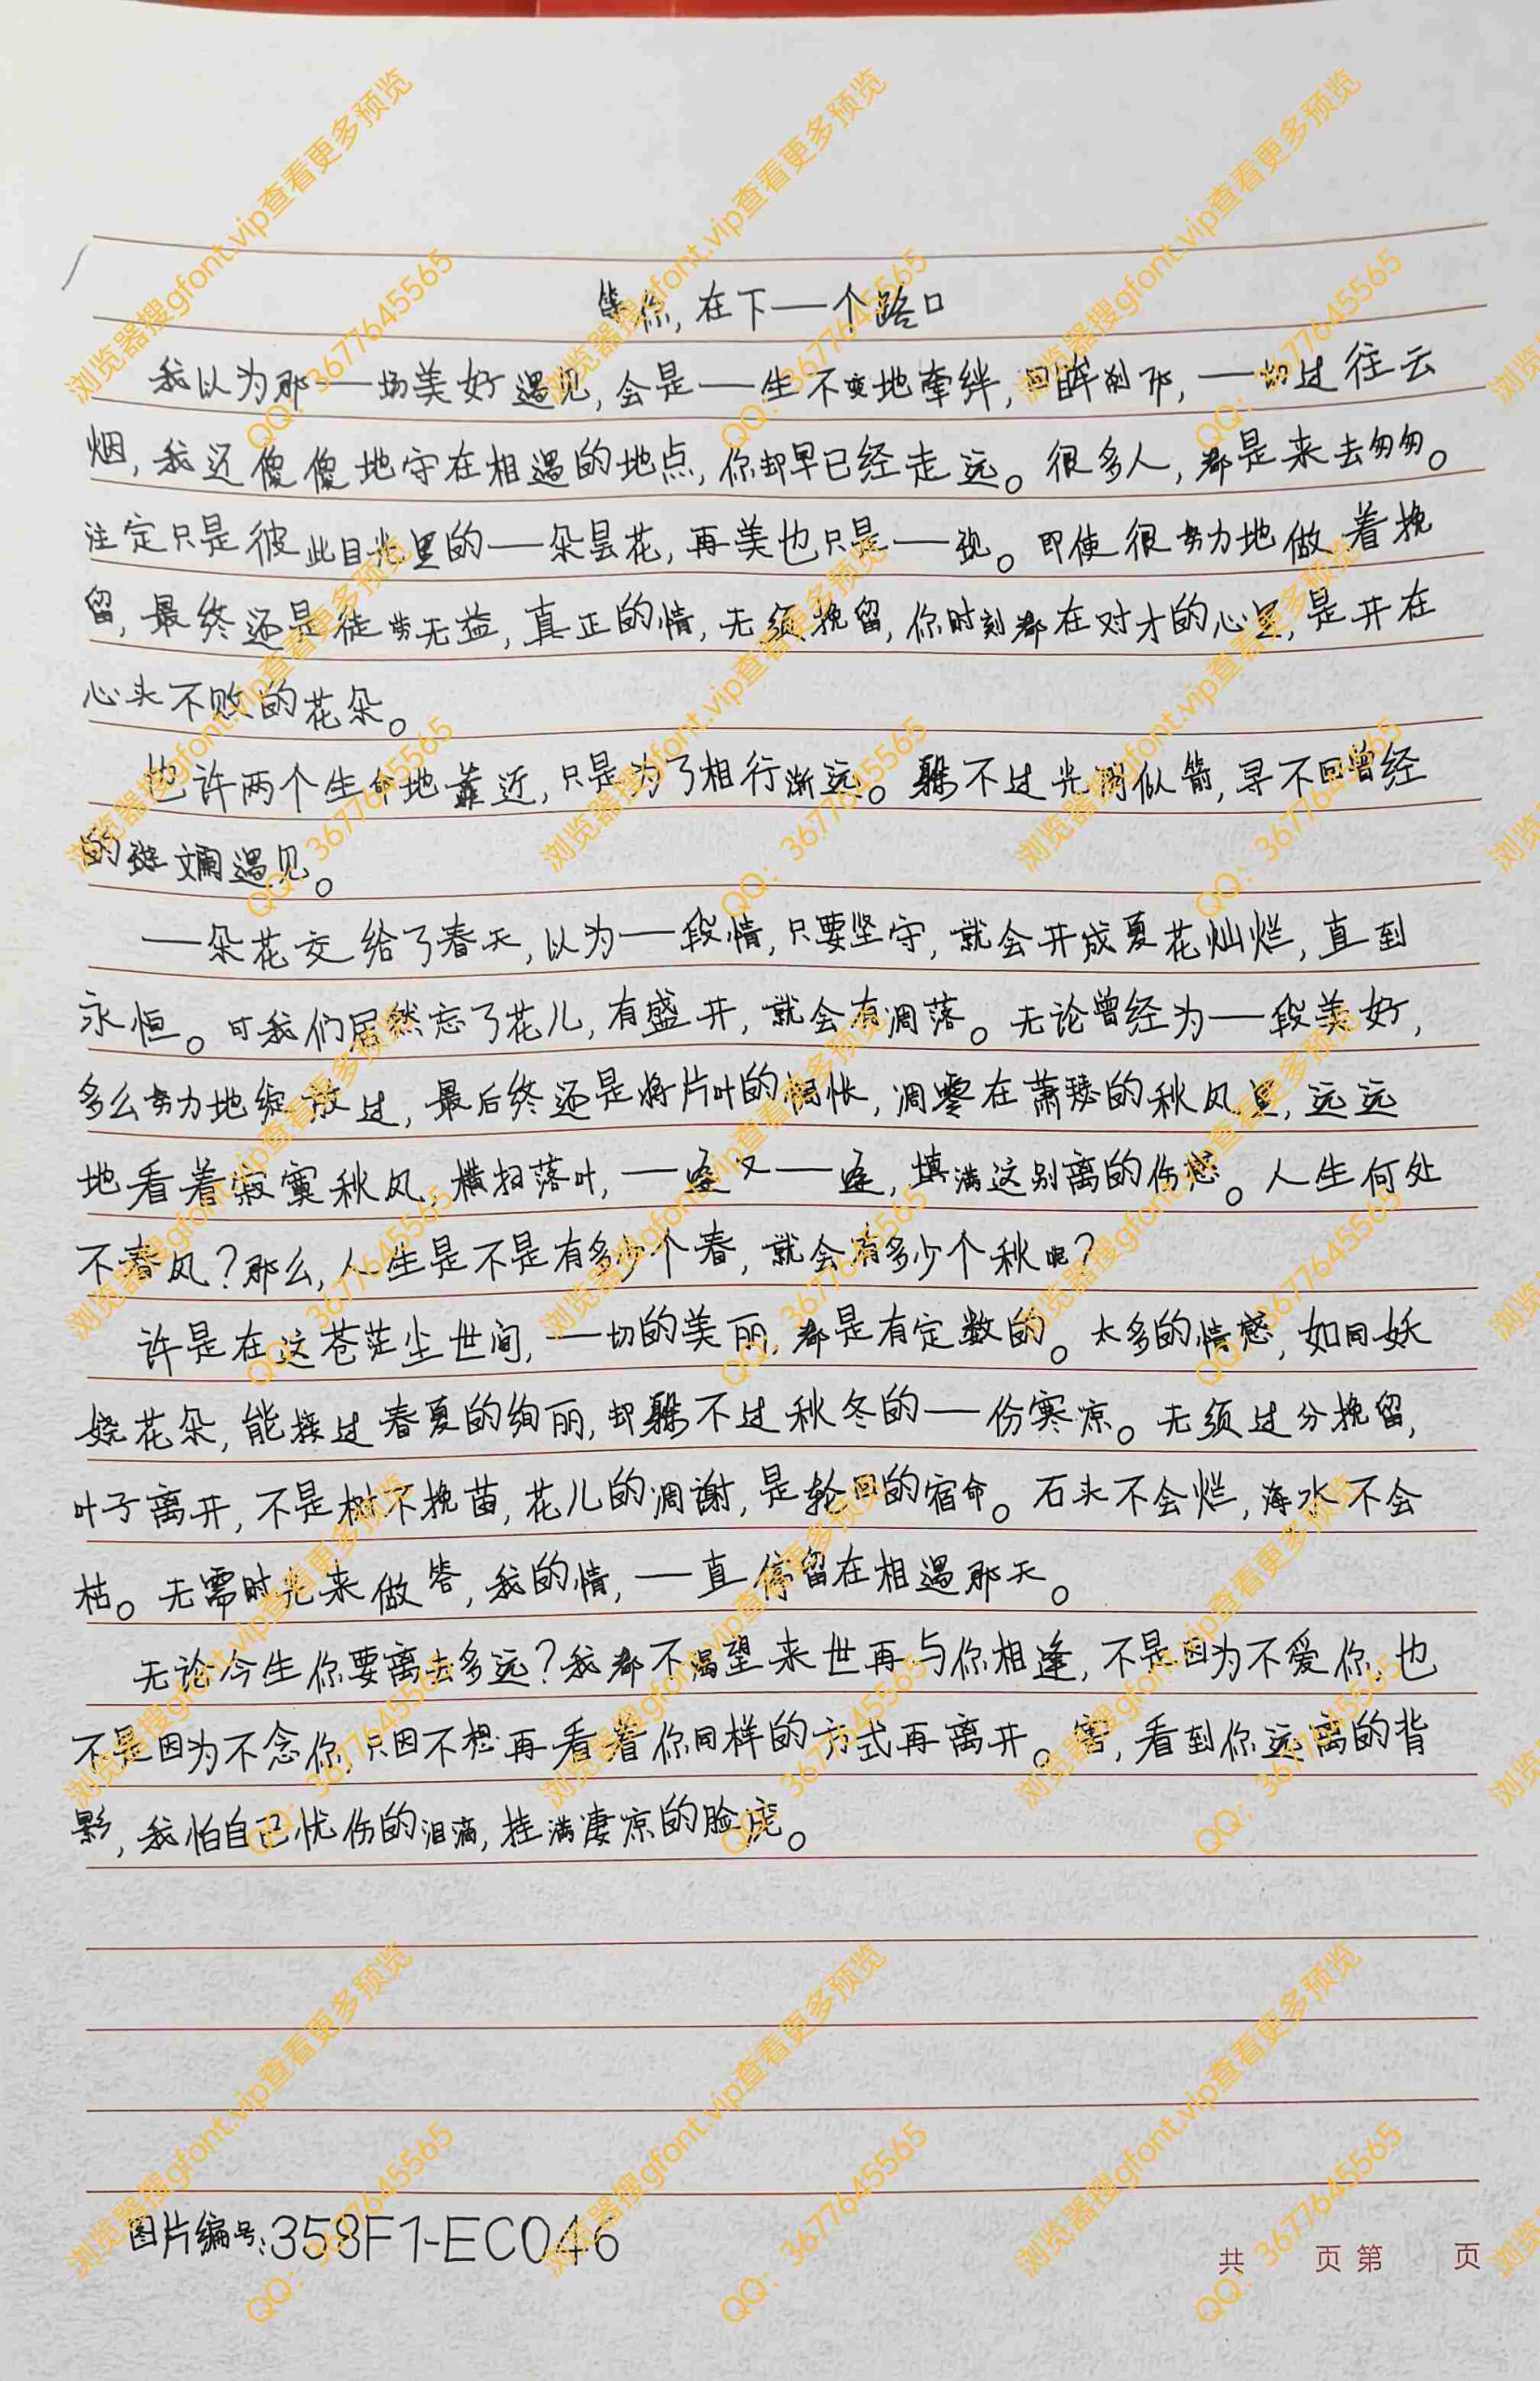 等你,在下一个路口
我以为那一场美好遇见,会是一生不变地牵绊,回眸刹那,一场过往云
烟,我还傻傻地守在相遇的地点,你却早已经走远。很多人,都是来去匆匆。
注定只是彼此目光里的一朵昙花,再美也只是一现。即使很努力地做着挽
留,最终还是徒劳无益,真正的情,无须挽留,你时刻都在对才的心里,是开在
心头不败的花朵。
也许两个生命地靠近,只是为了相行渐远。躲不过光阴似箭,寻不回曾经
的斑斓遇见。
一朵花交给了春天,以为一段情,只要坚守,就会开成夏花灿烂,直到
永恒。可我们居然忘了花儿,有盛开,就会有凋落。无论曾经为一段美好,
多么努力地绽放过,最后终还是将片叶的惆怅,凋零在萧瑟的秋风里,远远
地看着寂寞秋风,横扫落叶,一逢又一逢,填满这别离的伤悲。人生何处
不春风?那么,人生是不是有多少个春,就会有多少个秋呢?
许是在这苍茫尘世间,一切的美丽,都是有定数的。太多的情感,如同妖
娆花朵,能接过春夏的绚丽,却躲不过秋冬的一份寒凉。无须过分挽留,
叶子离开,不是树不挽苗,花儿的凋谢,是轮回的宿命。石头不会烂,海水不会
枯。无需时光来做答,我的情,一直停留在相遇那天。
无论今生你要离去多远?我都不渴望来世再与你相逢,不是因为不爱你,也
不是因为不念你,只因不想再看着你同样的方式再离开。害,看到你远离的背
影,我怕自己忧伤的泪滴,挂满凄凉的脸庞。
图片编号:358F1-EC046
共 页 第 页
浏览器搜gfont.vip查看更多预览
QQ: 3677645565